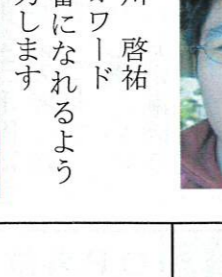 川 啓祐
ォワード
番になれるよう
力します